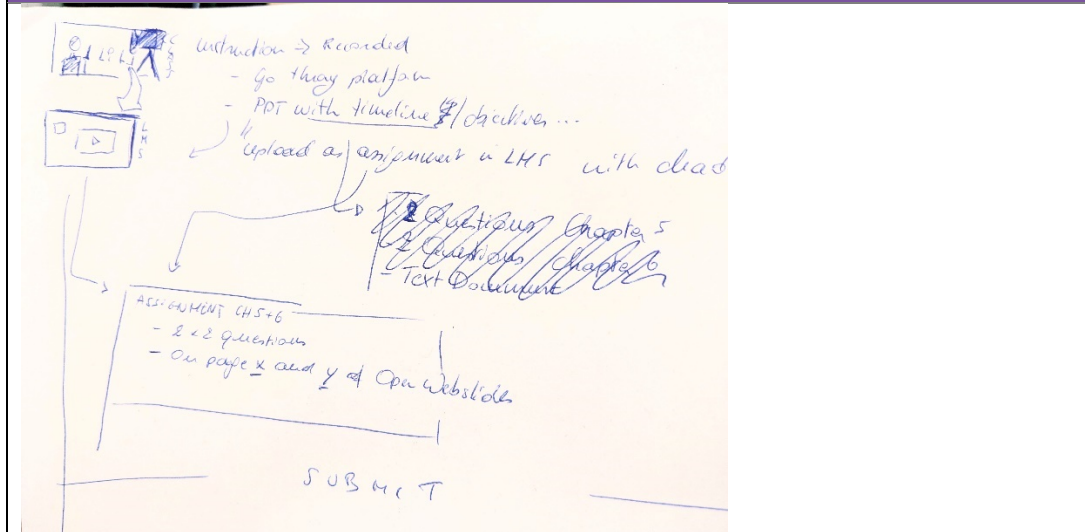 Instruction → Recorded
- Go throug platform
- PPT with timeline / objectives ...
upload as assignment in LMS with dead
LMS
2 Questions Chapter 5
2 Questions Chapter 6
- Text Document
ASSIGNMENT CH5+6
- 2 x 2 questions
- On page x and y of Open Webslides
SUBMIT